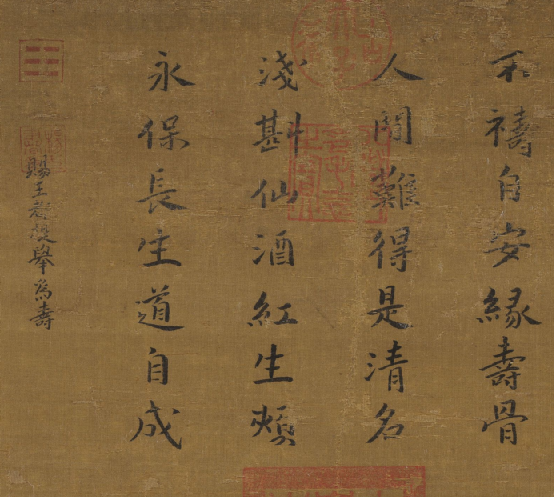 不禱自安緣壽骨
人間難得是清名
淺斟仙酒紅生頰
永保長生道自成
賜王都提舉為壽